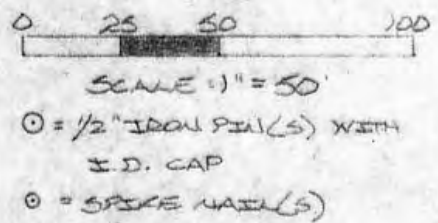 0 25 50 100
SCALE : 1" = 50'
⊙ = 1/2" IRON PIN(S) WITH
I.D. CAP
⊙ = SPIKE NAIL(S)